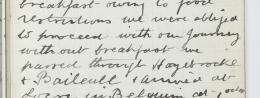 breakfast owing to food
restrictions we were obliged
to proceed with our journey
without breakfast we
passed through Hazebrocke
& Bailcull & arrived at
in Belgium at